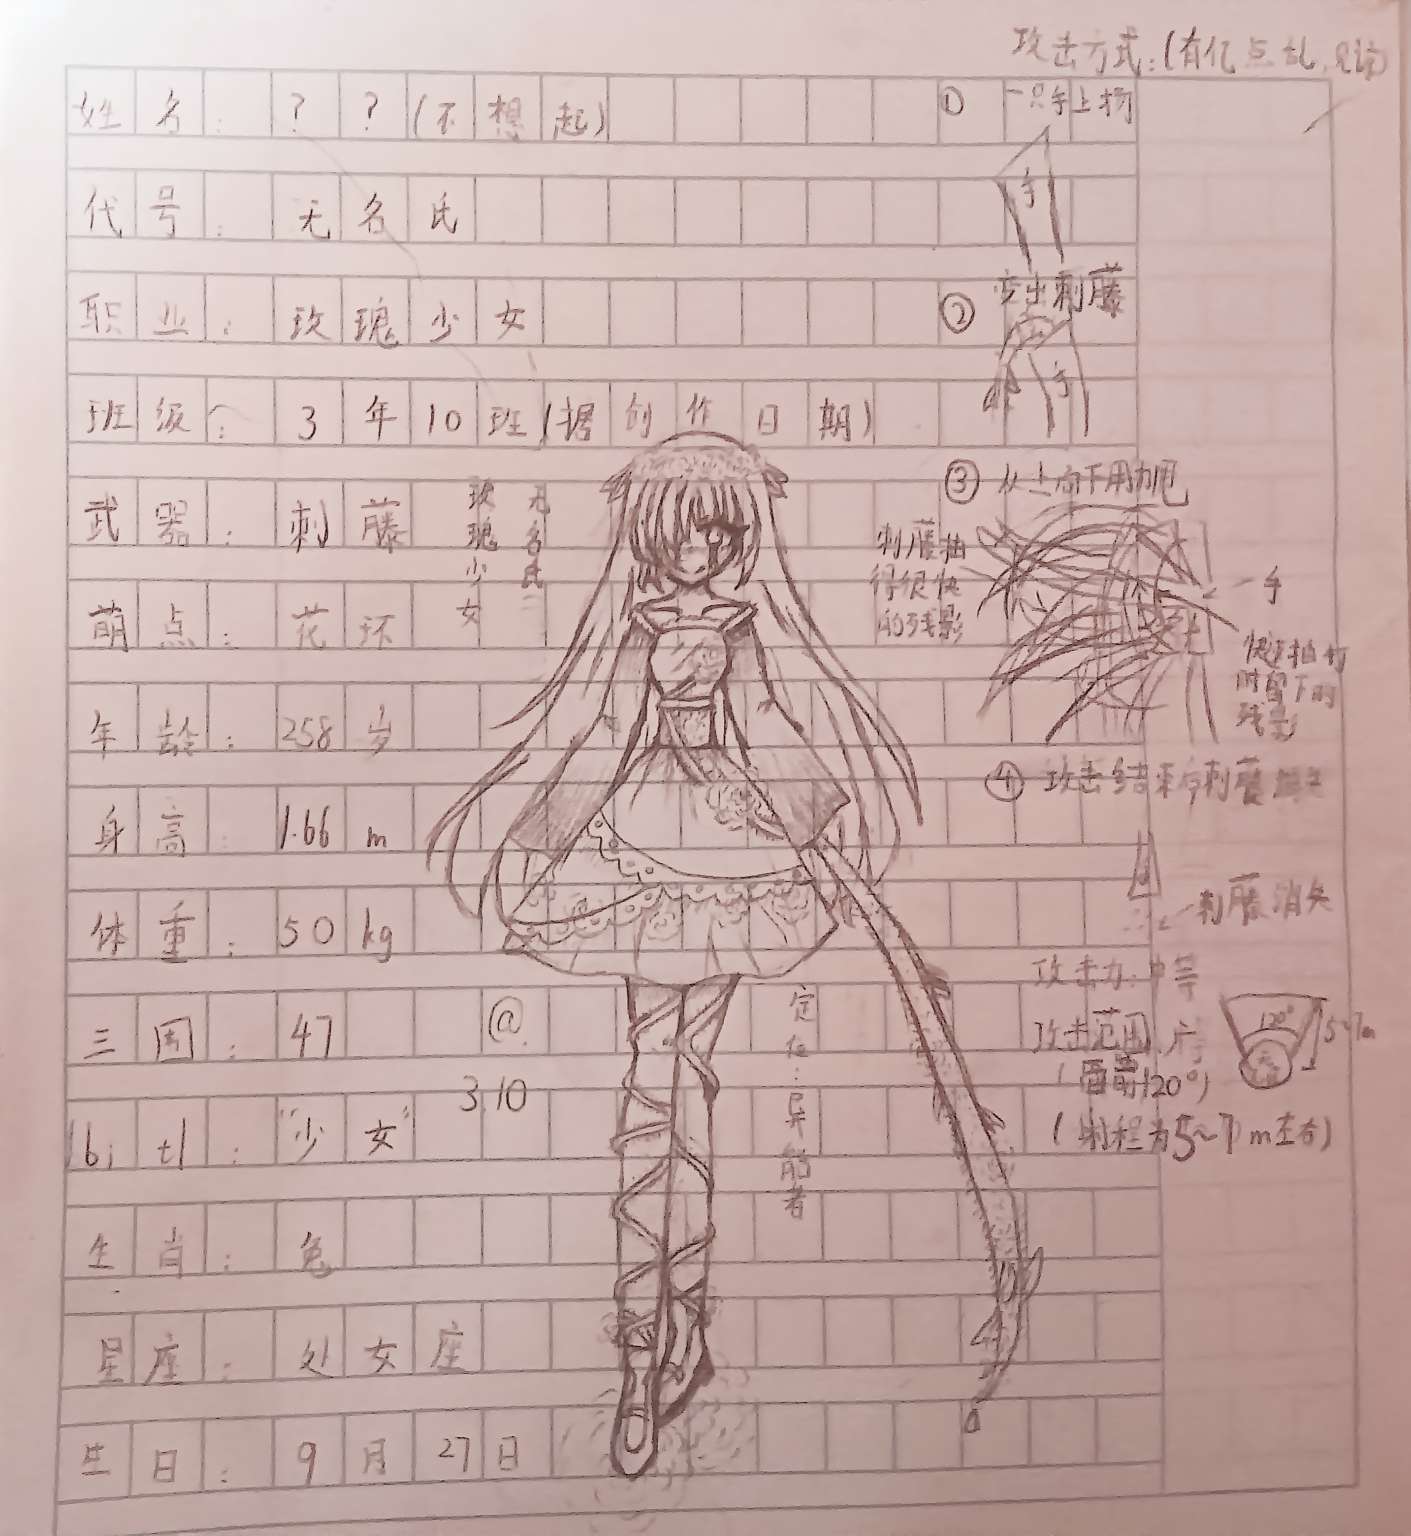 攻击方式：(有亿点乱,见谅)
姓名：？？(不想起)
代号：无名氏
职业：玫瑰少女
班级：3年10班(据创作日期)
武器：刺藤
萌点：花环
年龄：258岁
身高：1.66m
体重：50kg
三围：47
@
3.10
lbitl："少女"
生肖：兔
星座：处女座
生日：9月27日
玫瑰少女
无名氏
定位：异能者
① 一只手上扬
手
② 变出刺藤
手
③ 从上向下用力甩
刺藤抽
得很快
的残影
手
快速抽打
时留下的
残影
④ 攻击结束后刺藤消失
刺藤消失
攻击力：中等
攻击范围：广
(面前120°)
120°
5~7m
(射程为5~7m左右)